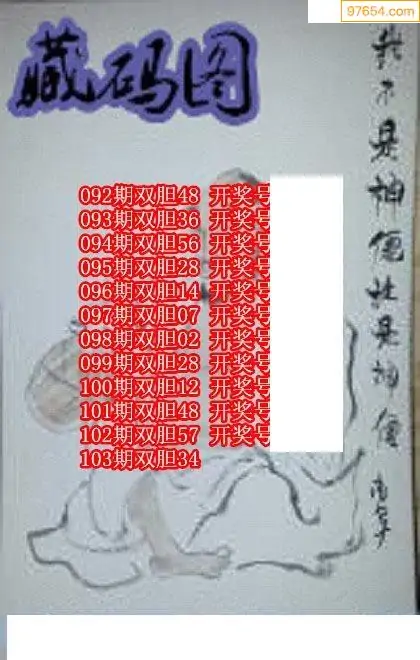 97654.com
藏码图
092期双胆48 开奖号
093期双胆36 开奖号
094期双胆56 开奖号
095期双胆28 开奖号
096期双胆14 开奖号
097期双胆07 开奖号
098期双胆02 开奖号
099期双胆28 开奖号
100期双胆12 开奖号
101期双胆48 开奖号
102期双胆57 开奖号
103期双胆34
我不是神仙社是神仙